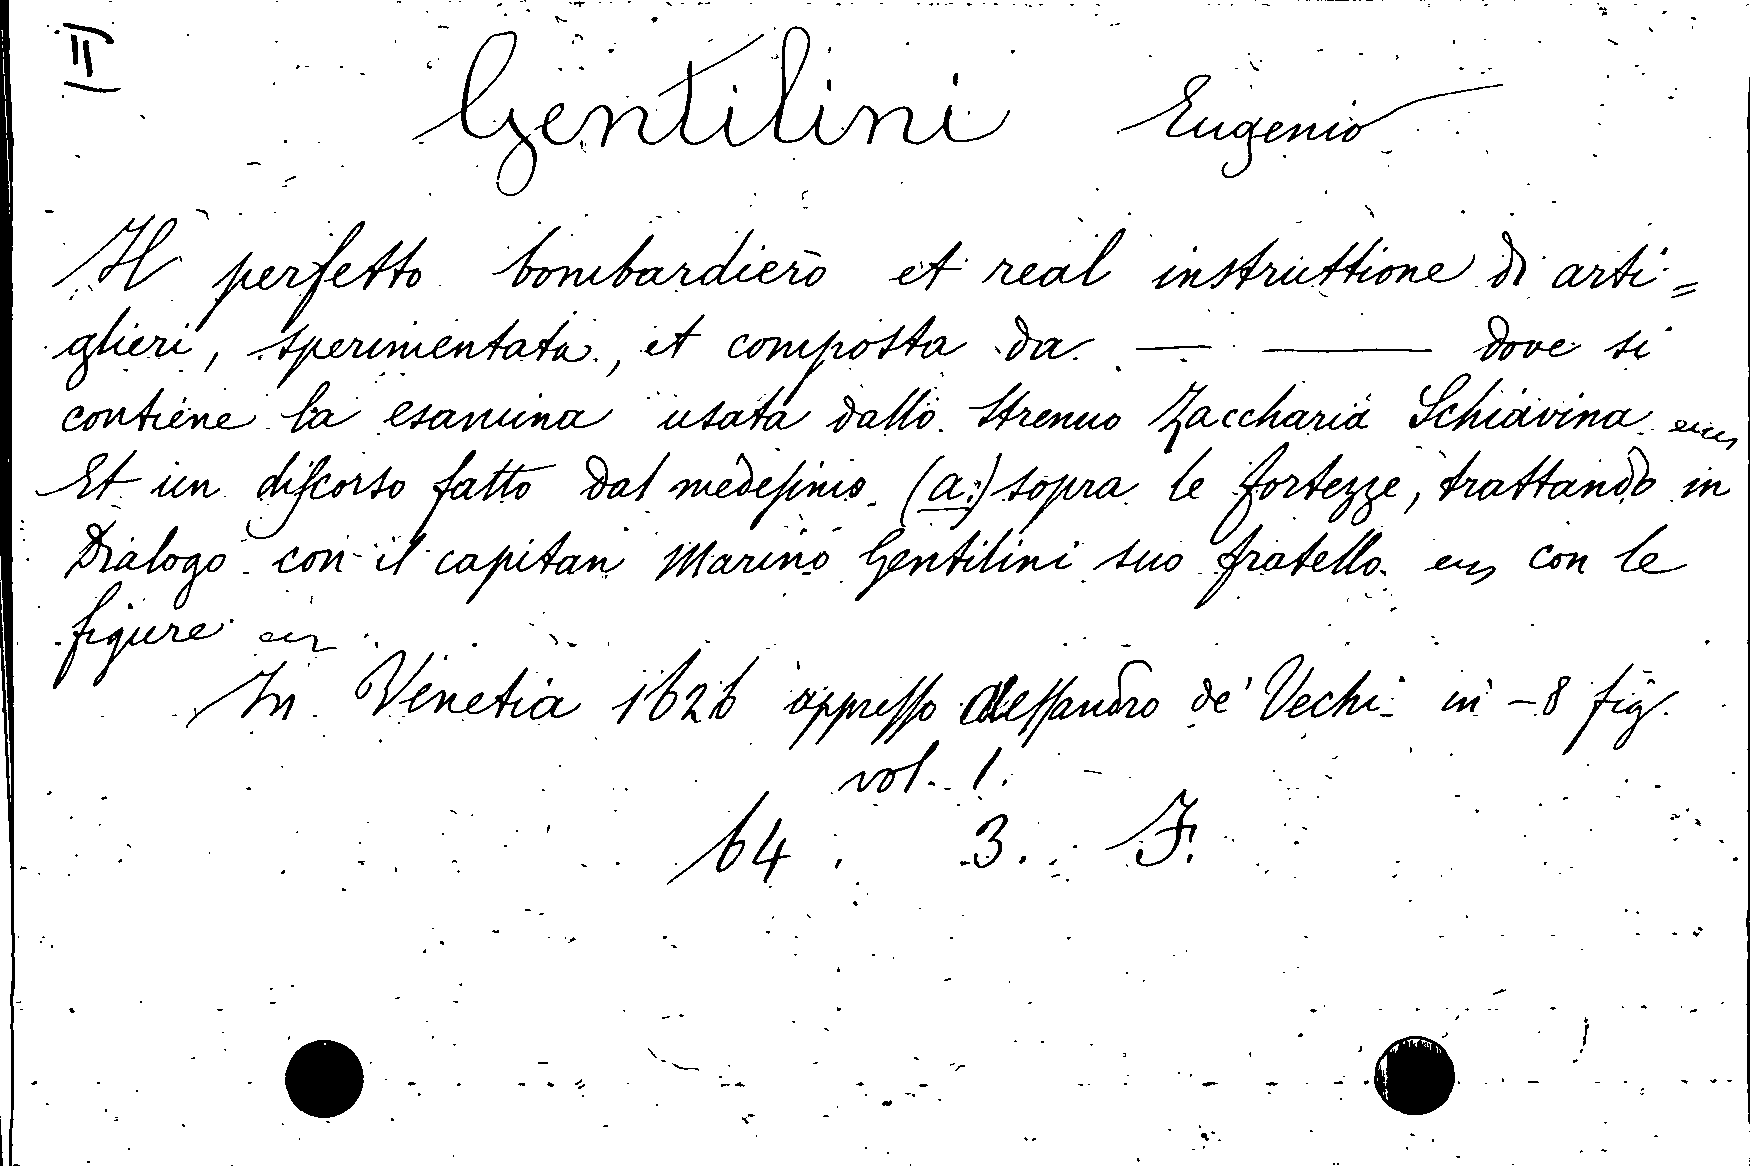 II
Gentilini Eugenio
Il perfetto bombardiero et real instruttione di arti=
glieri, sperimentata, et composta da — —— dove si
contiene la esamina usata dallo strenuo Zaccharia Schiavina
Et un discorso fatto dal medesimo (a:) sopra le fortezze, trattando in
Dialogo con il capitan Marino Gentilini suo fratello con le
figure
In Venetia 1626 appresso Alessandro de' Vechi in-8 fig.
vol. 1.
64. 3. F.